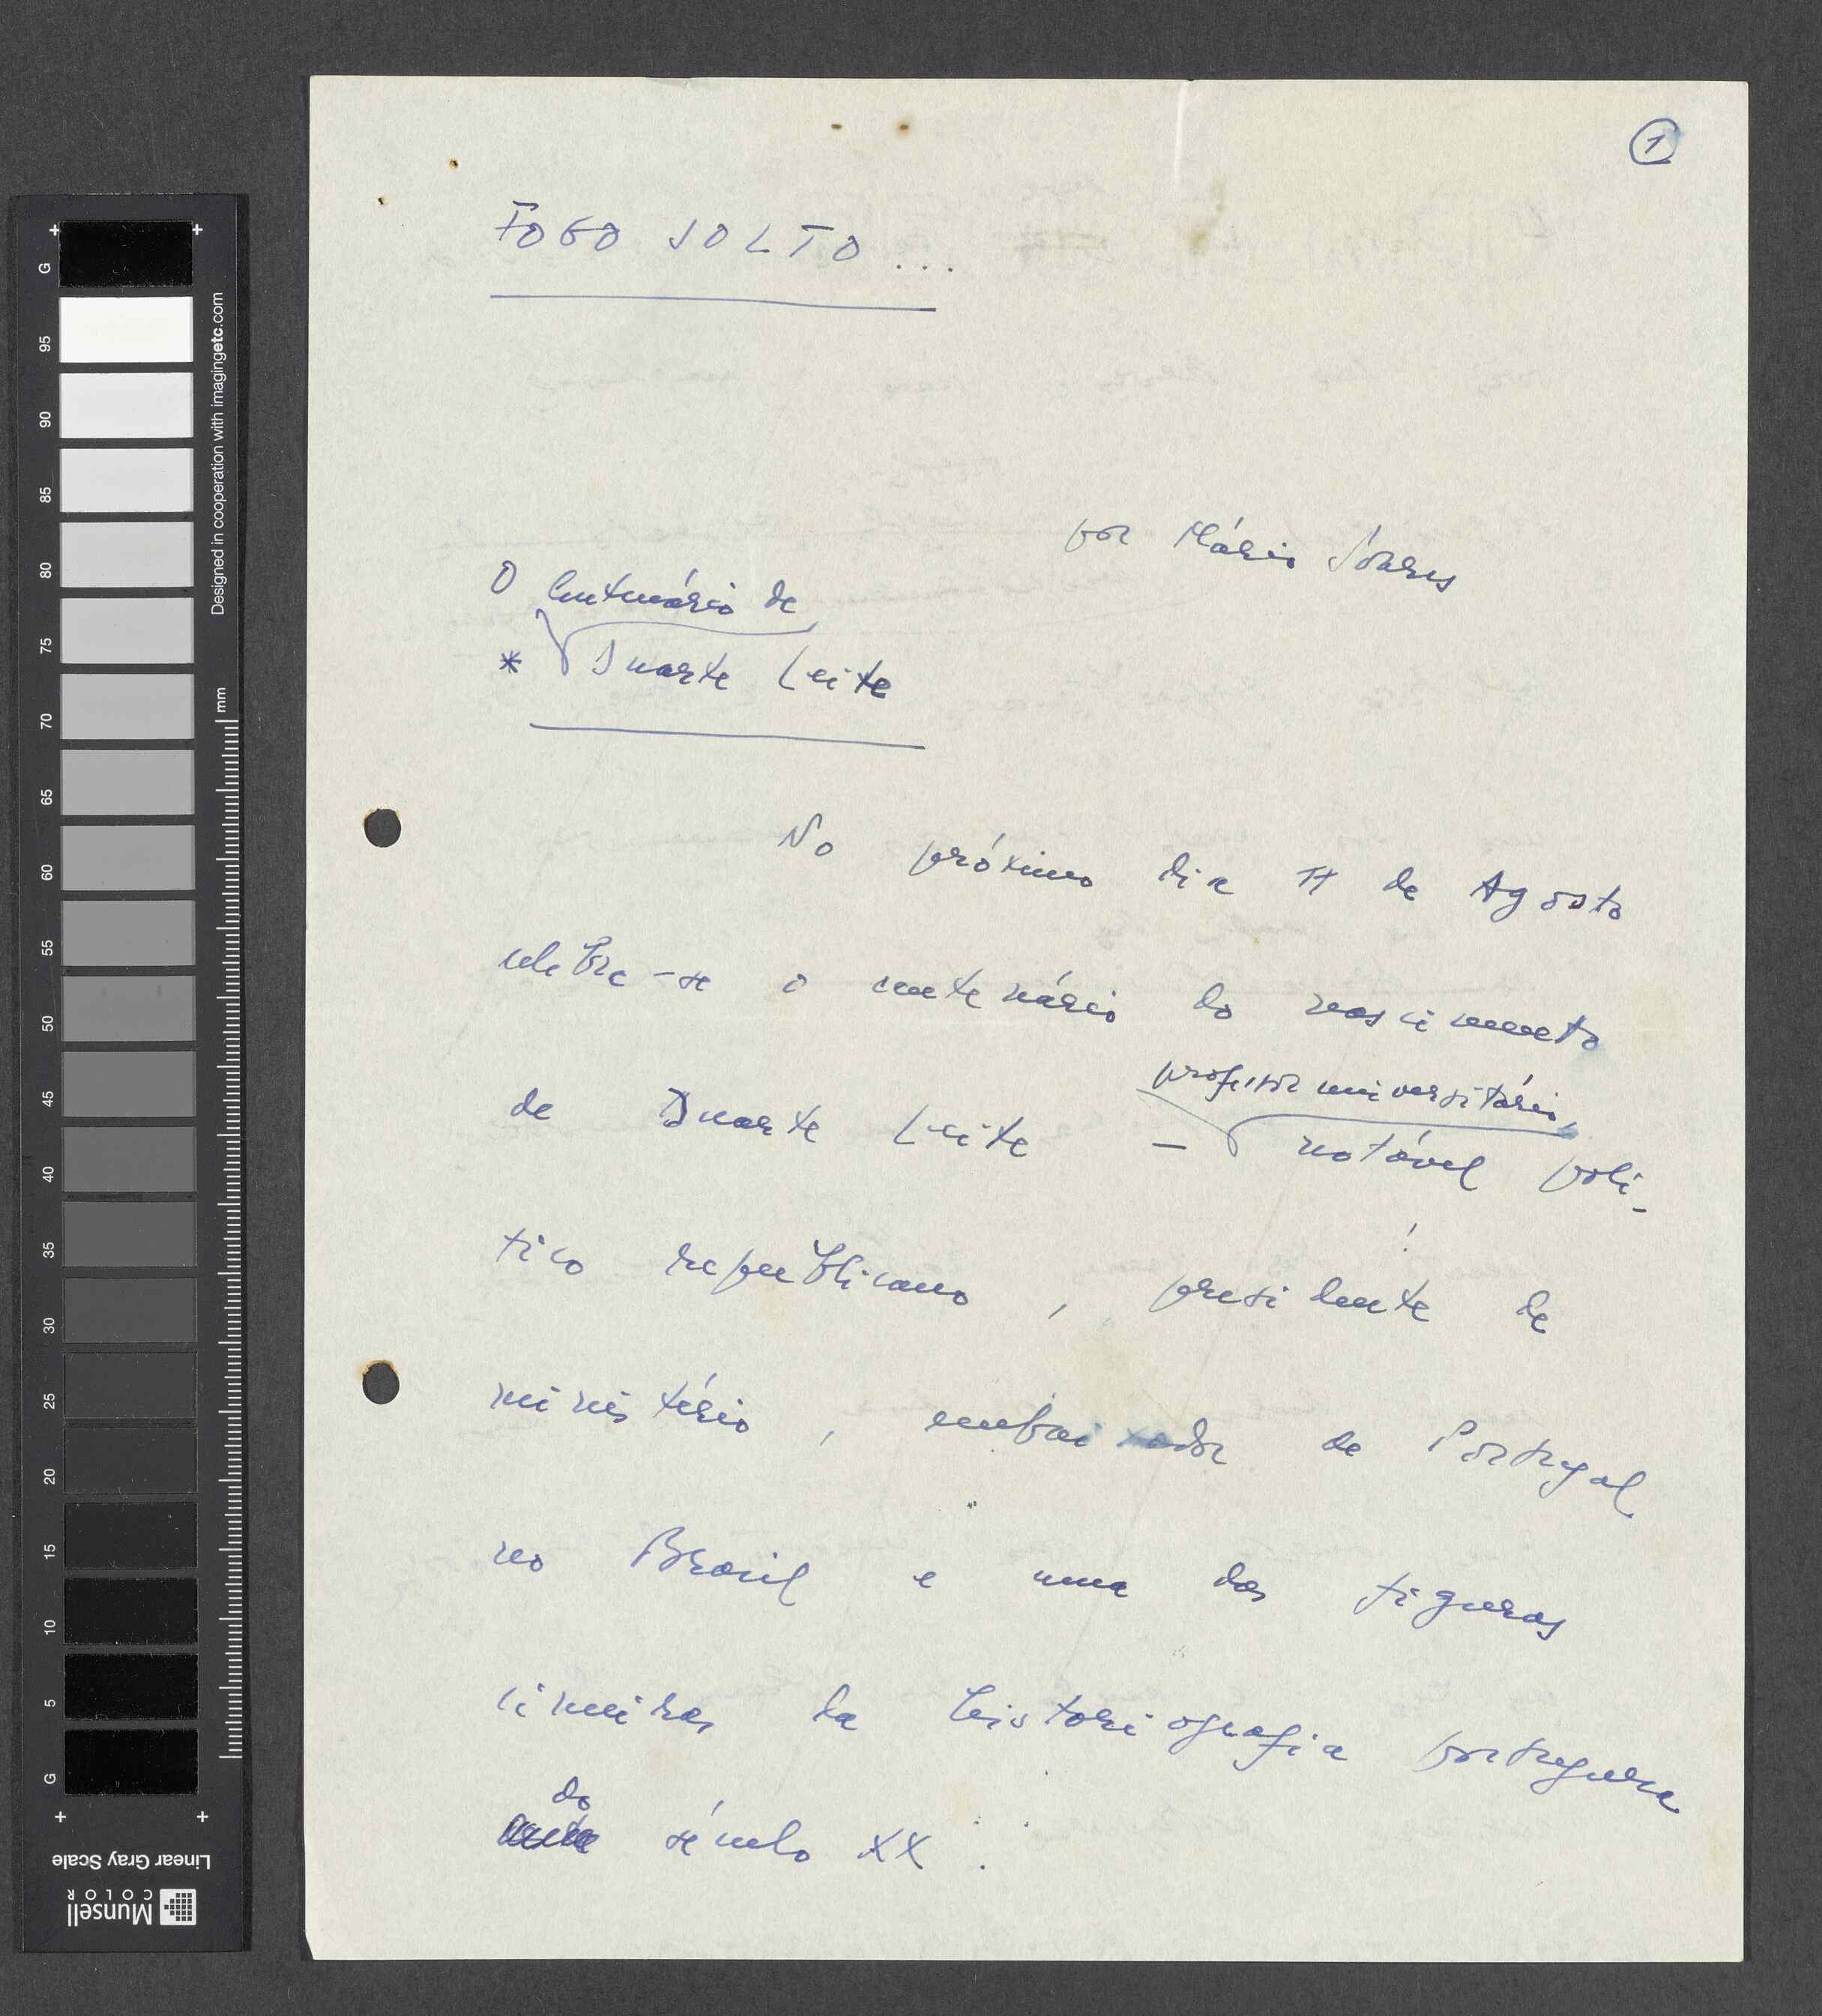 1
FOGO SOLTO...
por Mário Soares
O Centenário de
* Duarte Leite
No próximo dia 11 de Agosto
celebra-se o centenário do nascimento
professor universitário,
de Duarte Leite — notável polí-
tico republicano, presidente de
ministério, embaixador de Portugal
no Brasil e uma das figuras
cimeiras da historiografia portuguesa
do
século XX.
G
95
90
85
80
75
70
65
60
55
50
45
40
35
30
25
20
15
10
5
G
Designed in cooperation with imagingetc.com
mm
Linear Gray Scale
Munsell
COLOR